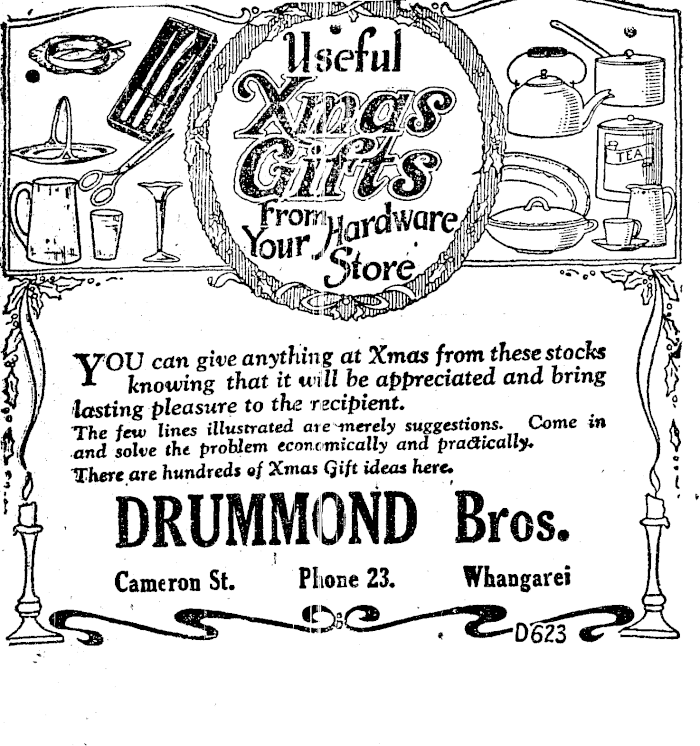 Useful
Xmas
Gifts
from Hardware
Your Store
TEA
YOU can give anything at Xmas from these stocks
knowing that it will be appreciated and bring
lasting pleasure to the recipient.
The few lines illustrated are merely suggestions. Come in
and solve the problem economically and practically.
There are hundreds of Xmas Gift ideas here.
DRUMMOND Bros.
Cameron St. Phone 23. Whangarei
D623